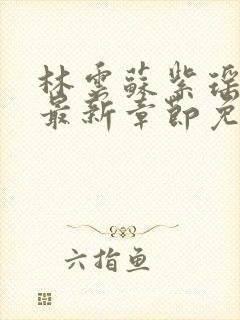 林雲蘇紫瑶
最新章節免
六指鱼